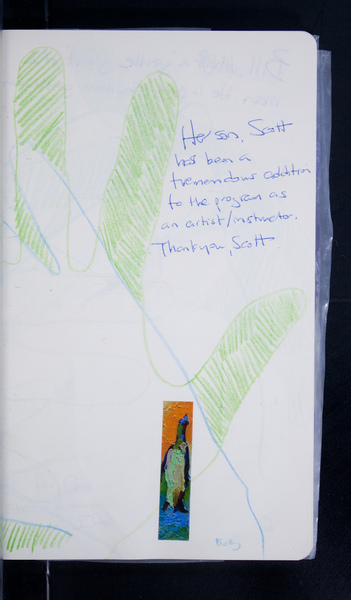 Her son, Scott
has been a
tremendous addition
to the program as
an artist/instructor.
Thank you, Scott.